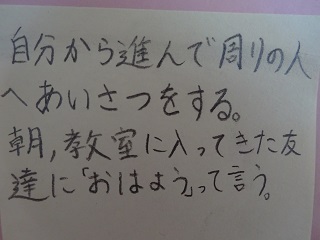 自分から進んで周りの人
へあいさつをする。
朝,教室に入ってきた友
達に「おはよう」って言う。